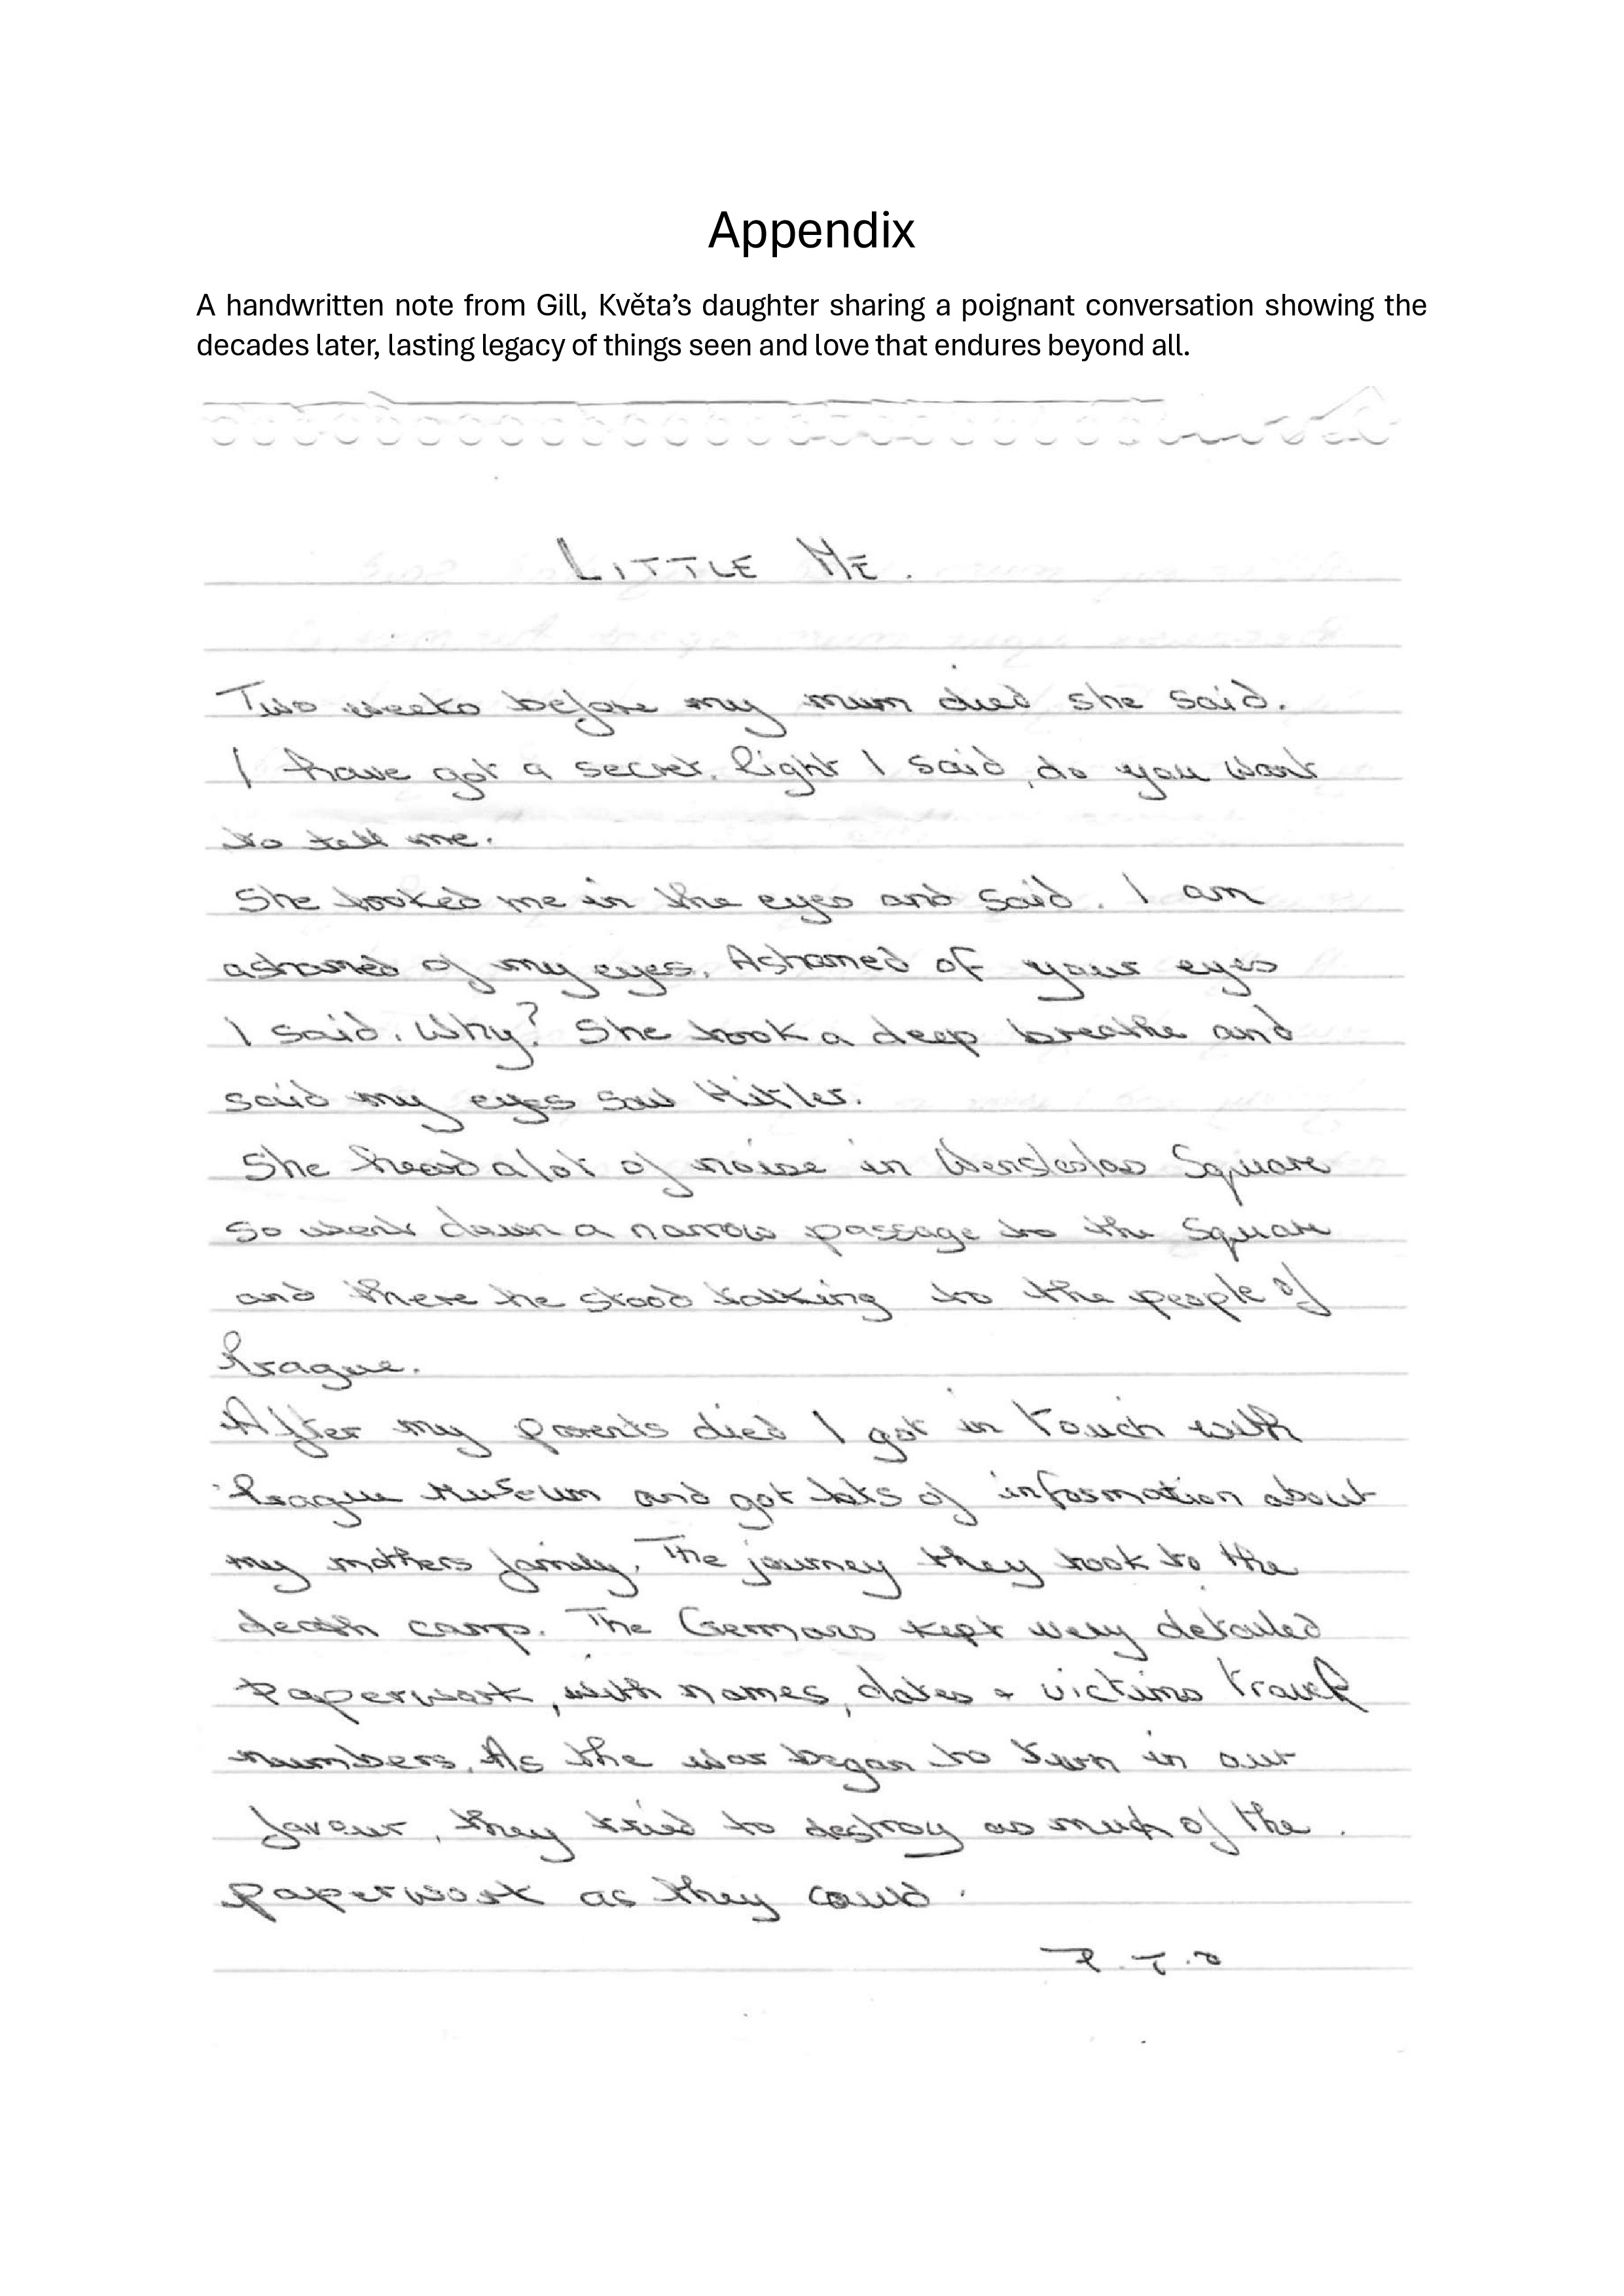 Appendix
A handwritten note from Gill, Květa's daughter sharing a poignant conversation showing the
decades later, lasting legacy of things seen and love that endures beyond all.
LITTLE ME.
Two weeks before my mum died she said.
I have got a secret. Right I said, do you want
to tell me.
She looked me in the eyes and said. I am
ashamed of my eyes. Ashamed of your eyes
I said. Why? She took a deep breathe and
said my eyes saw Hitler.
She heard a lot of noise in Wenslelas Square
so went down a narrow passage to the Square
and there he stood talking to the people of
Prague.
After my parents died I got in touch with
Prague Museum and got lots of information about
my mothers family. The journey they took to the
death camp. The Germans kept very detailed
paperwork, with names, dates + victims travel
numbers. As the war began to turn in our
favour, they tried to destroy as much of the.
paperwork as they could.
P.T.O